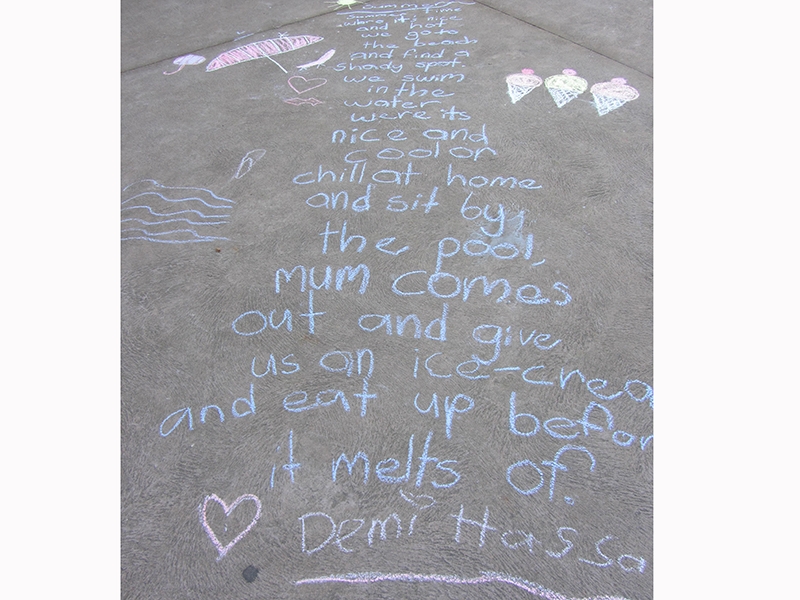 Summer
Summer time
when it is nice
and hot
we go to
the beach
and find a
shady spot
we swim
in the
water
were its
nice and
cool or
chill at home
and sit by
the pool,
mum comes
out and give
us an ice-crea
and eat up befor
it melts of.
Demi Hassa